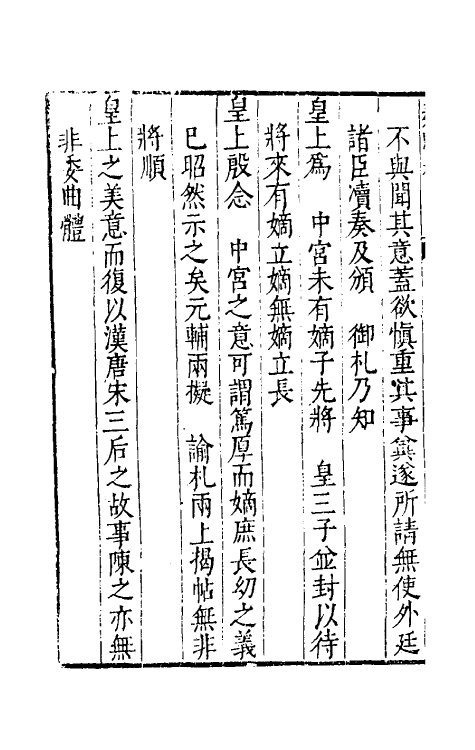 不與聞其意蓋欲慎重其事兾遂所請無使外廷
諸臣凟奏及頒　御札乃知
皇上爲　中宮未有嫡子先將　皇三子並封以待
將來有嫡立嫡無嫡立長
皇上殷念　中宮之意可謂篤厚而嫡庶長幼之義
已昭然示之矣元輔兩擬　諭札兩上揭帖無非
將順
皇上之美意而復以漢唐宋三后之故事陳之亦無
非委曲體